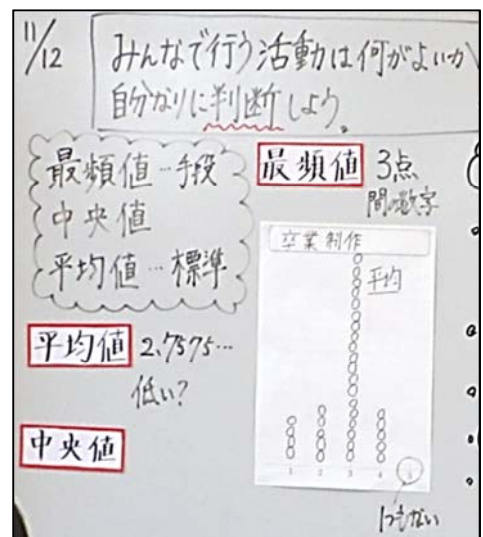 11/12
みんなで行う活動は何がよいか
自分なりに判断しよう。
最頻値…手段
中央値
平均値…標準
最頻値 3点
間の数字
卒業制作
平均
1 2 3 4 5
1つもない
平均値 2.7575…
低い?
中央値